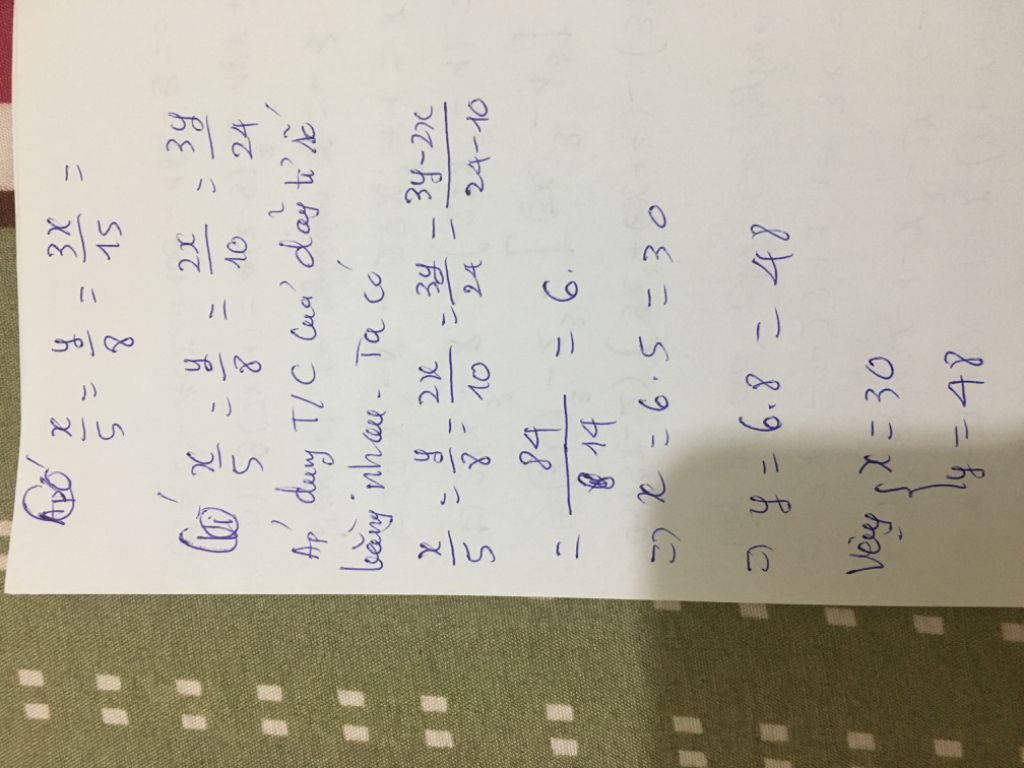 x/5 = y/8 = 3x/15 =
Vì x/5 = y/8 = 2x/10 = 3y/24
Áp dụng T/C của dãy tỉ số
bằng nhau - Ta có
x/5 = y/8 = 2x/10 = 3y/24 = 3y-2x/24-10
= 84/14 = 6.
=> x = 6.5 = 30
=> y = 6.8 = 48
Vậy { x = 30
y = 48